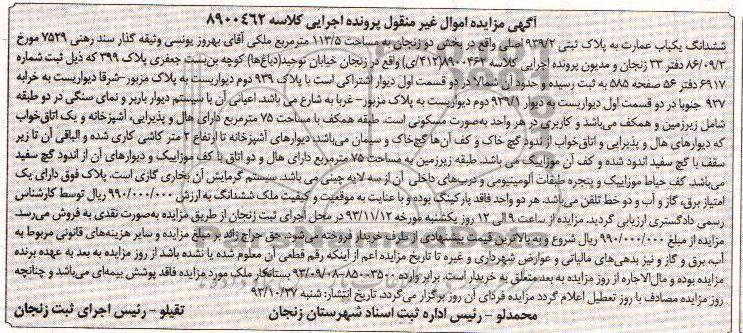 آگهی مزایده اموال غیر منقول پرونده اجرایی کلاسه ۸۹۰۰۴۶۲
ششدانگ یکباب عمارت به پلاک ثبتی ۹۳۹/۲ اصلی واقع در بخش دو زنجان به مساحت ۱۱۳/۵ مترمربع ملکی آقای بهروز یونسی وثیقه گذار سند رهنی ۷۵۲۹ مورخ
۸۶/۰۹/۳ دفتر ۲۳ زنجان و مدیون پرونده اجرایی کلاسه ۸۹۰۰۴۶۲(۳۱۲/ی) واقع در زنجان خیابان توحید(دباغ‌ها) کوچه بن‌بست جعفری پلاک ۳۹۹ که ذیل ثبت شماره
۶۹۱۷ دفتر ۵۶ صفحه ۵۸۵ به ثبت رسیده و حدود آن شمالا: در دو قسمت اول دیوار اشتراکی است با پلاک ۹۳۹ دوم دیواریست به پلاک مزبور-شرقا دیواریست به خرابه
۹۳۷ جنوبا در دو قسمت اول دیواریست به دیوار ۹۳۹/۱ دوم دیواریست به پلاک مزبور- غربا به شارع می باشد. اعیانی آن با سیستم دیوار باربر و نمای سنگی در دو طبقه
شامل زیرزمین و همکف می‌باشد و کاربری در هر واحد به‌صورت مسکونی است. طبقه همکف با مساحت ۷۵ مترمربع دارای هال و پذیرایی، آشپزخانه و یک اتاق‌خواب
که دیوارهای هال و پذیرایی و اتاق‌خواب از اندود گچ خاک و کف آن‌ها گچ‌خاک و سیمان می‌باشد دیوارهای آشپزخانه تا ارتفاع ۲ متر کاشی کاری شده و الباقی آن تا زیر
سقف با گچ سفید اندود شده و کف آن موزاییک می باشد. طبقه زیرزمین به مساحت ۷۵ مترمربع دارای هال و دو اتاق با کف موزاییک و دیوارهای آن از اندود گچ سفید
می‌باشد. کف حیاط موزاییک و پنجره طبقات آلومینیومی و درب‌های داخلی آن از سه لایه چینی می باشد. سیستم گرمایش آن بخاری گازی است. پلاک فوق دارای یک
امتیاز برق، گاز و آب و دو خط تلفن می‌باشد. هر دو واحد فاقد پارکینگ بوده و با عنایت به موقعیت و کیفیت ملک ششدانگ به ارزش ۹۹۰/۰۰۰/۰۰۰ ریال توسط کارشناس
رسمی دادگستری ارزیابی گردید. مزایده از ساعت ۹ الی ۱۲ روز یکشنبه مورخه ۹۳/۱۱/۱۲ در محل اجرای ثبت زنجان از طریق مزایده به‌صورت نقدی به فروش می‌رسد.
مزایده از مبلغ ۹۹۰/۰۰۰/۰۰۰ ریال شروع و به بالاترین قیمت پیشنهادی از طرف خریدار فروخته می‌شود. حق حراج زائد بر مبلغ مزایده و سایر هزینه‌های قانونی مربوط به
آب، برق و گاز و نیز بدهی‌های مالیاتی و عوارض شهرداری و غیره تا تاریخ مزایده اعم از اینکه رقم قطعی آن معلوم شده یا نشده باشد از روز مزایده به بعد به عهده برنده
مزایده بوده و مال‌الاجاره از روز مزایده به بعد متعلق به خریدار است. برابر وارده ۳۵۰۰-۸۵-۹۳/۰۹/۰۸ بستانکار ملک مورد مزایده فاقد پوشش بیمه‌ای می‌باشد و چنانچه
روز مزایده مصادف با روز تعطیل اعلام گردد مزایده فردای آن روز برگزار می‌گردد. تاریخ انتشار: شنبه ۹۳/۱۰/۲۷
محمدلو - رئیس اداره ثبت اسناد شهرستان زنجان
تقیلو - رئیس اجرای ثبت زنجان